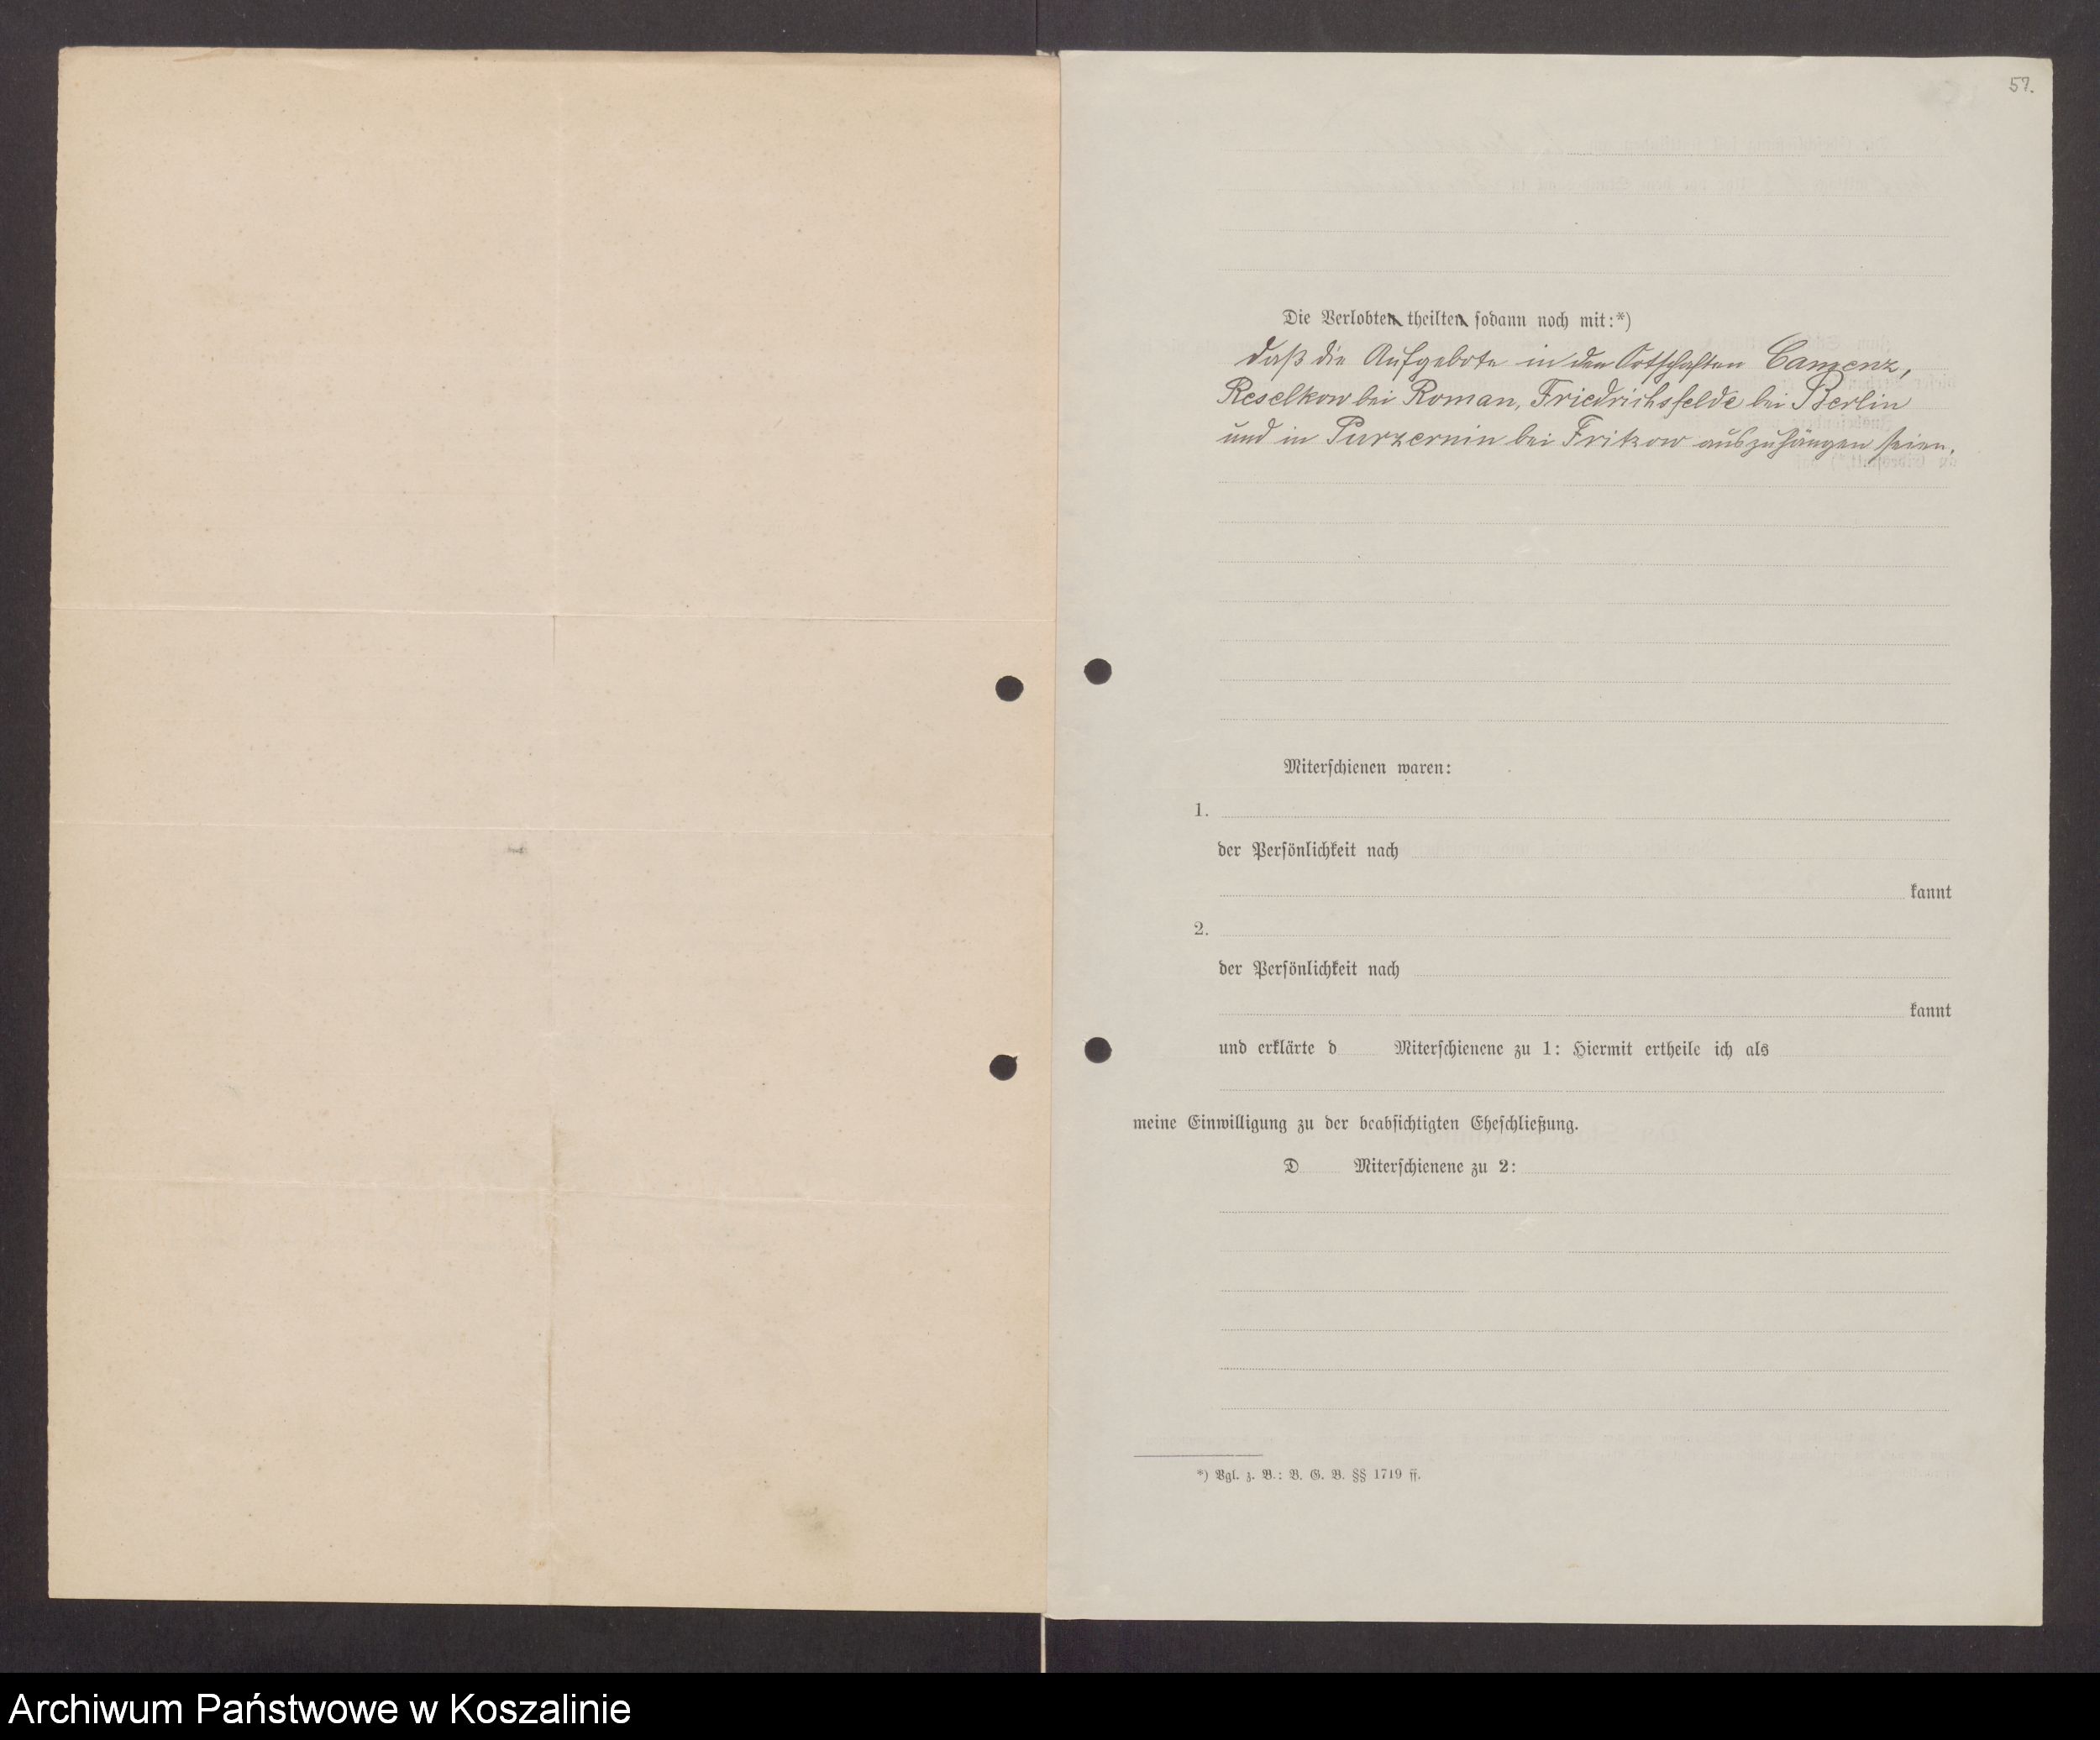 57.
Die Verlobten theilten sodann noch mit:*)
daß die Aufgebote in den Ortschaften Camenz,
Reselkow bei Roman, Friedrichsfelde bei Berlin
und in Purzernin bei Fritzow auszuhängen seien.
Miterschienen waren:
1.
der Persönlichkeit nach
kannt
2.
der Persönlichkeit nach
kannt
und erklärte d Miterschienene zu 1: Hiermit ertheile ich als
meine Einwilligung zu der beabsichtigten Eheschließung.
D Miterschienene zu 2:
*) Vgl. z. B.: B. G. B. §§ 1719 ff.
Archiwum Państwowe w Koszalinie